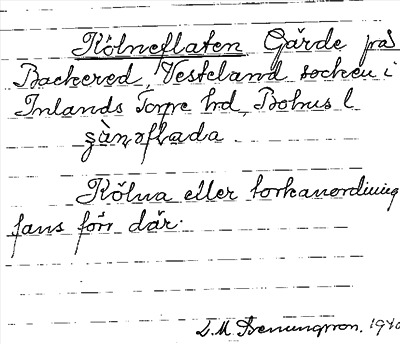 Kölneflaten Gärde på
Backered, Vesteland socken i
Inlands Torpe hd, Bohus l

Kölna eller torkanordning
fans förr där.
1940